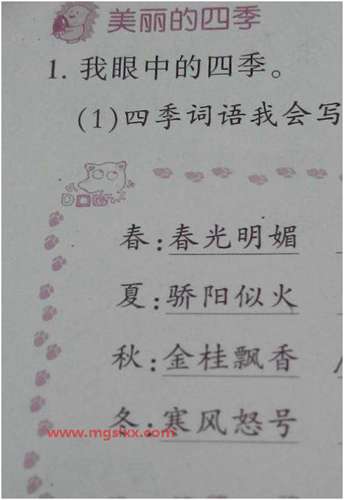 美丽的四季
1. 我眼中的四季。
(1)四季词语我会写
春:春光明媚
夏:骄阳似火
秋:金桂飘香
冬:寒风怒号
www.mgslxx.com